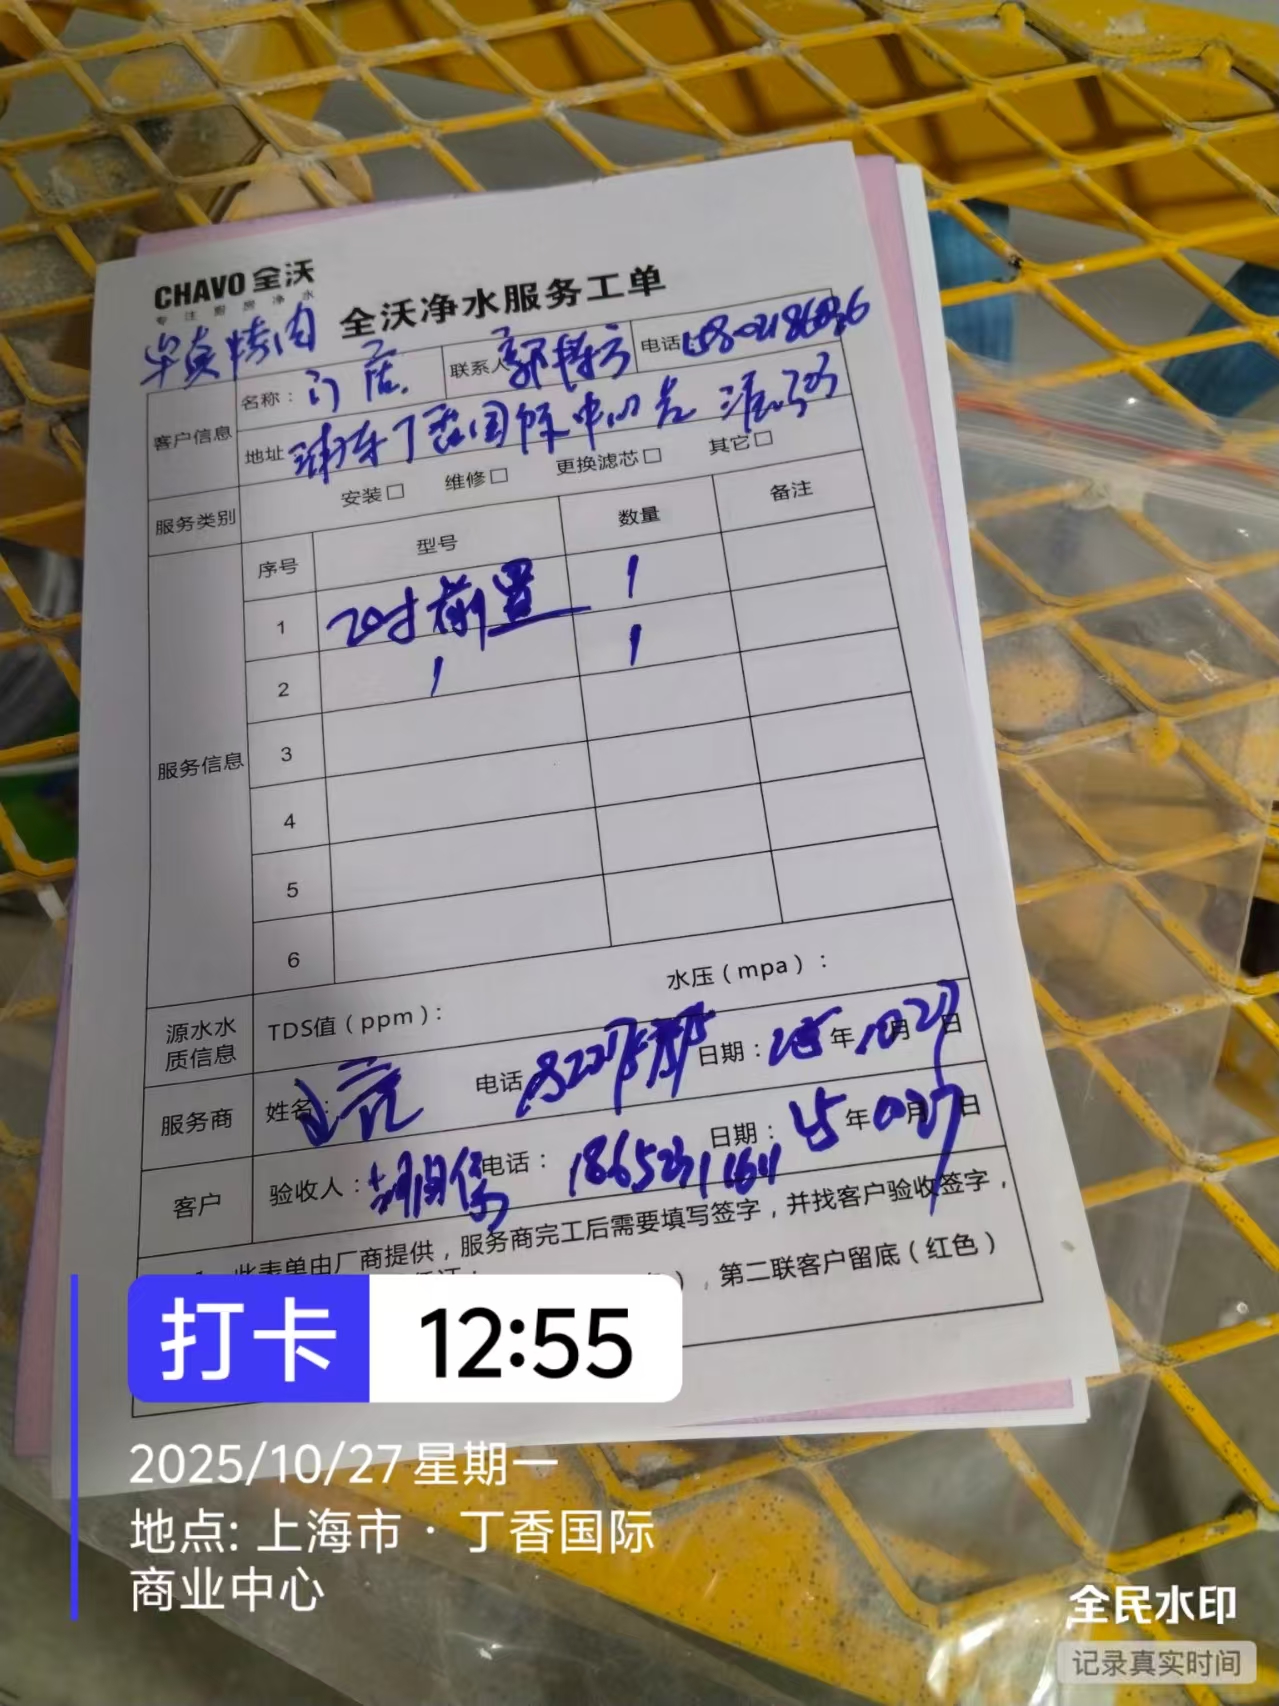 CHAVO 全沃
专注厨房净水
全沃净水服务工单
烤肉
客户信息 名称：门店 联系人 电话
地址 浦东丁香国际中心
服务类别 安装□ 维修□ 更换滤芯□ 其它□
服务信息 序号 型号 数量 备注
1 20寸前置 1
2 1 1
3
4
5
6
源水水质信息 TDS值（ppm）： 水压（mpa）：
服务商 姓名： 电话 日期：25年10月27日
客户 验收人： 电话： 日期：25年10月27日
此表单由厂商提供，服务商完工后需要填写签字，并找客户验收签字，
），第二联客户留底（红色）
打卡 12:55
2025/10/27 星期一
地点: 上海市·丁香国际
商业中心
全民水印
记录真实时间